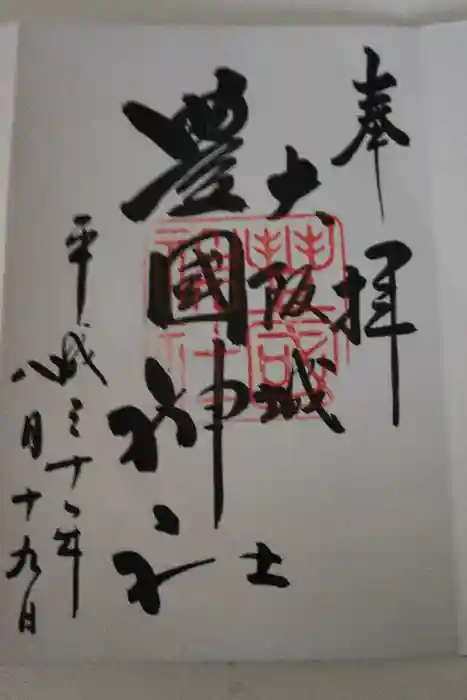 奉拝
大阪城
豊國神社
平成二十二年
八月十九日